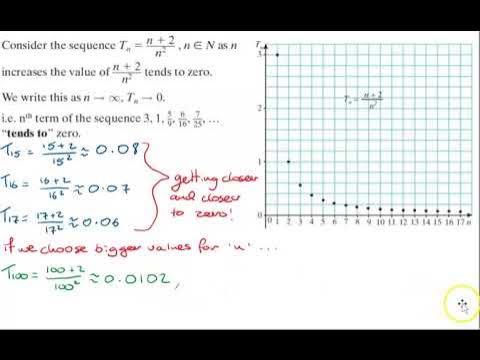 Consider the sequence Tₙ = (n + 2)/n², n ∈ N as n
increases the value of (n + 2)/n² tends to zero.
We write this as n → ∞, Tₙ → 0.
i.e. nᵗʰ term of the sequence 3, 1, 5/9, 6/16, 7/25, ...
"tends to" zero.
T15 = (15+2)/15² ≈ 0.08
T16 = (16+2)/16² ≈ 0.07
T17 = (17+2)/17² ≈ 0.06
getting closer
and closer
to zero!
if we choose bigger values for 'n' ...
T100 = (100+2)/100² ≈ 0.0102,
Tₙ
3
Tₙ = (n + 2)/n²
2
1
0
0 1 2 3 4 5 6 7 8 9 10 11 12 13 14 15 16 17 n